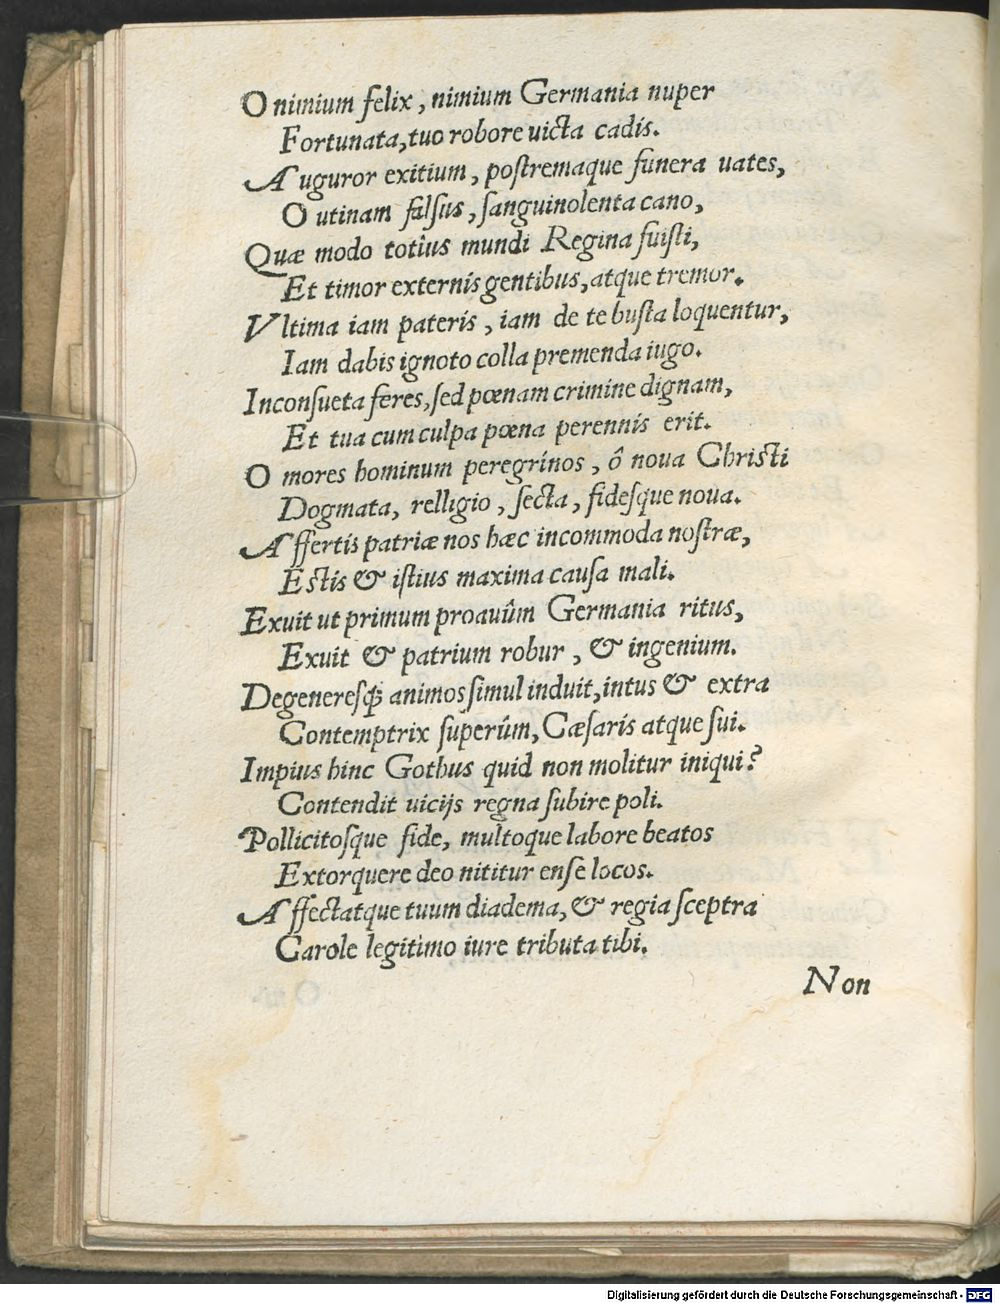 O nimium felix, nimium Germania nuper
Fortunata, tuo robore uicta cadis.
Auguror exitium, postremaque funera uates,
O utinam falsus, sanguinolenta cano,
Quæ modo totîus mundi Regina fuisti,
Et timor externis gentibus, atque tremor.
Vltima iam pateris, iam de te busta loquentur,
Iam dabis ignoto colla premenda iugo.
Inconsueta feres, sed pœnam crimine dignam,
Et tua cum culpa pœna perennis erit.
O mores hominum peregrinos, ô noua Christi
Dogmata, relligio, secta, fidesque noua.
Affertis patriæ nos hæc incommoda nostræ,
Estis & istius maxima causa mali.
Exuit ut primum proauûm Germania ritus,
Exuit & patrium robur, & ingenium.
Degeneresq́; animos simul induit, intus & extra
Contemptrix superûm, Cæsaris atque sui.
Impius hinc Gothus quid non molitur iniqui?
Contendit uicijs regna subire poli.
Pollicitosque fide, multoque labore beatos
Extorquere deo nititur ense locos.
Affectatque tuum diadema, & regia sceptra
Carole legitimo iure tributa tibi.
Non
Digitalisierung gefördert durch die Deutsche Forschungsgemeinschaft - DFG